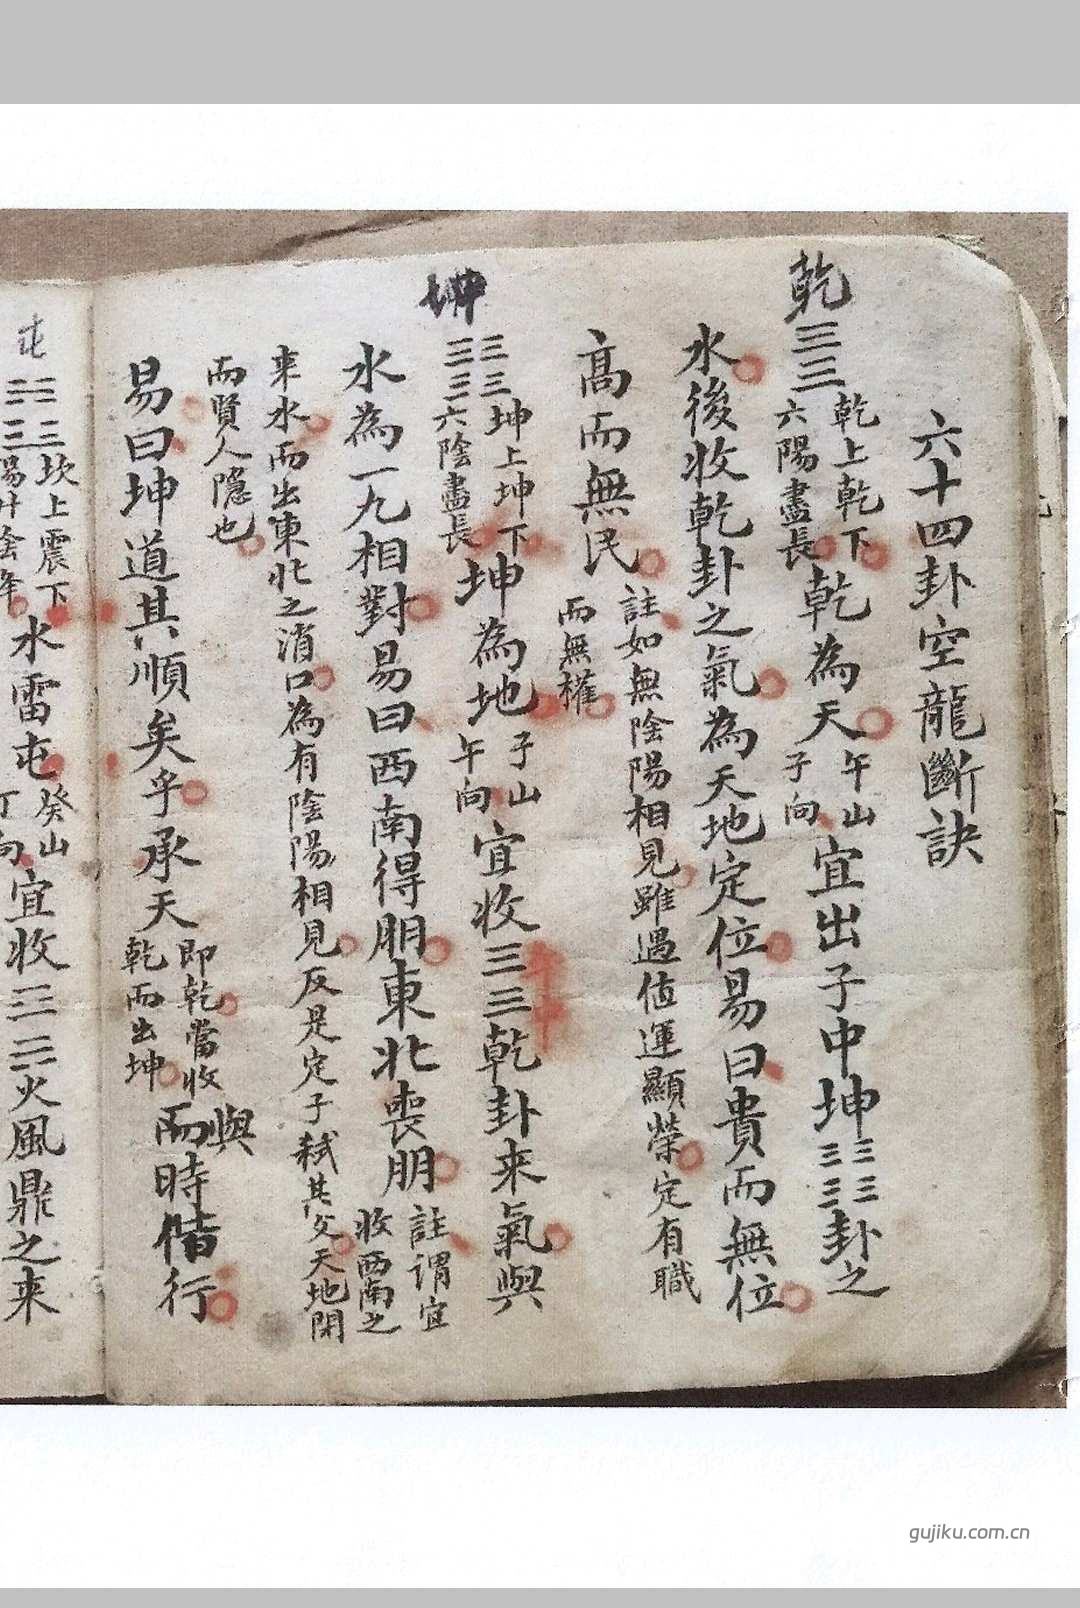 六十四卦空龍斷訣
乾
☰☰
乾上乾下
六陽盡長
乾為天
午山
子向
宜出子中坤☷☷卦之
水後收乾卦之氣為天地定位易曰貴而無位
高而無民
註如無陰陽相見雖遇值運顯榮定有職
而無權
坤
☷☷
坤上坤下
六陰盡長
坤為地
子山
午向
宜收☰☰乾卦来氣與
水為一九相對易曰西南得朋東北喪朋
註謂宜
收西南之
来水而出東北之消口為有陰陽相見反是定子弒其父天地閉
而賢人隱也
易曰坤道其順矣乎承天
即乾當收
乾而出坤
與
而時偕行
屯
坎上震下
水雷屯
癸山
丁向
宜收
火風鼎之来
gujiku.com.cn